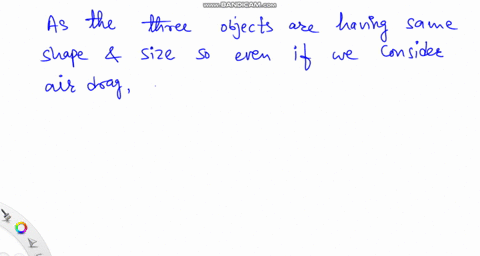 www.BANDICAM.com
As the three objects are having same
shape & size so even if we consider
air drag,